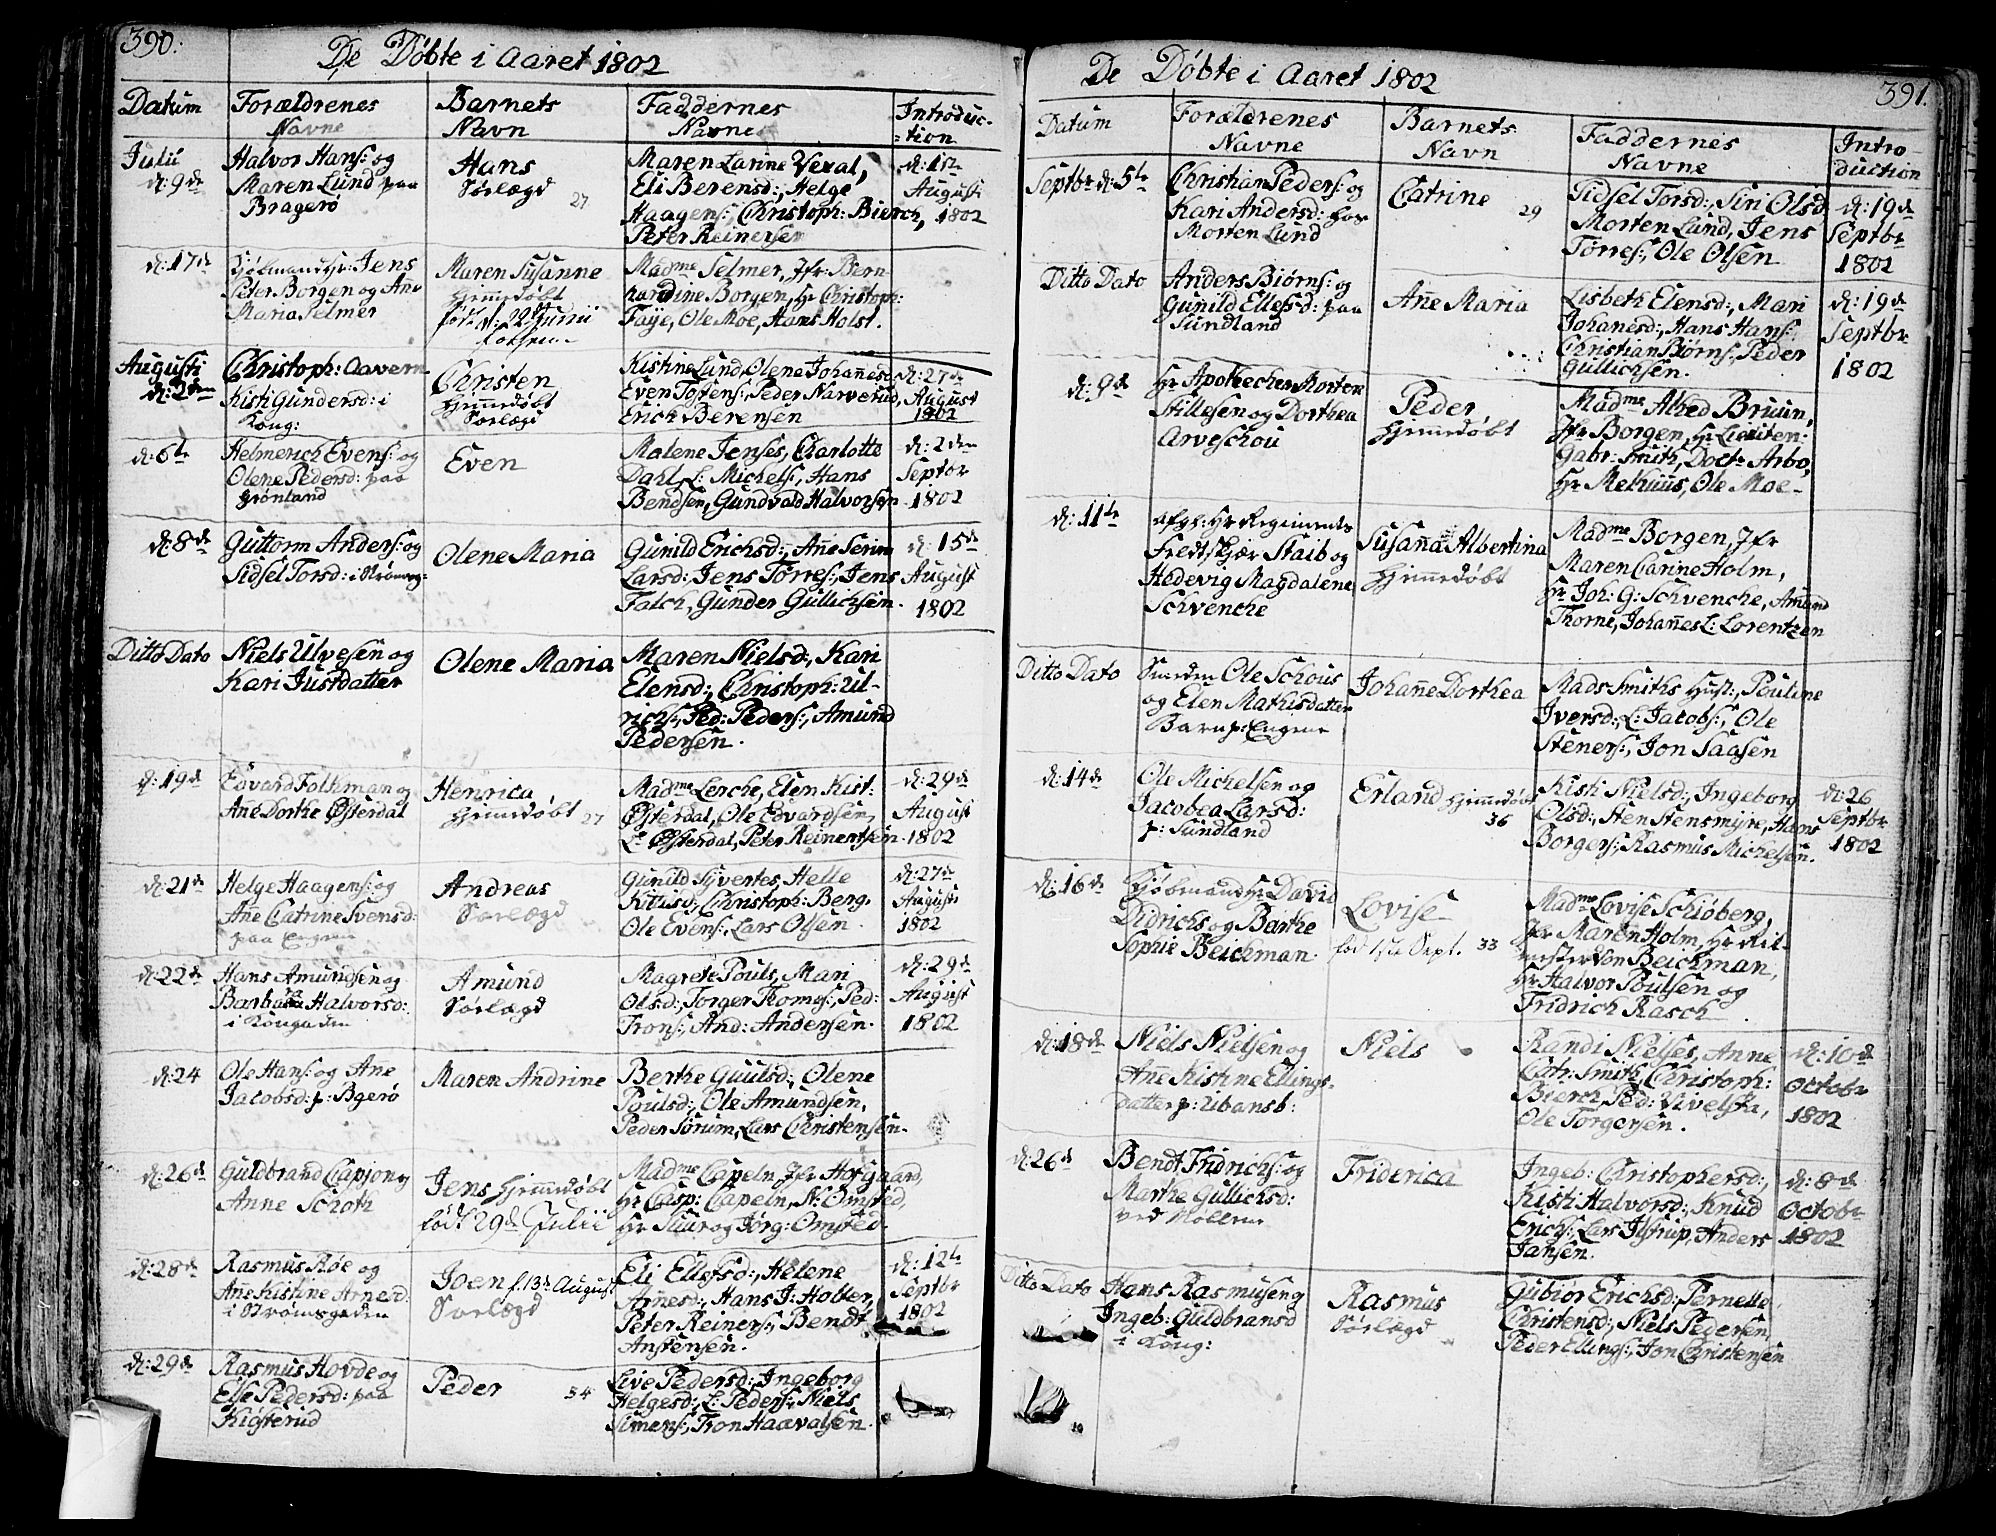 390.
De Døbte i Aaret 1802
Datum
Forældrenes
Navne
Barnets
Navn
Faddernes
Navne
Introduc-
=tion
Julii
d: 9de
Halvor Hans: og
Maren Lund paa
Bragerø
Hans
Sørlægd 27
Maren Larine Veral,
Eli Berensd:, Helge
Haagens:, Christoph: Bierch,
Peter Reinersen
d: 1te
Augusti
1802
d: 17de
Kjøbmand Hr: Jens
Peter Borgen og Ane
Maria Selmer
Maren Susanne
Hjemmedøbt
Madme Selmer, Jfr: Bern-
hardine Borgen, Hr Christoph:
Faÿe, Ole Moe, Hans Holst.
Augusti
d: 2den
Christoph: Aavern
Kisti Gundersd: i
Kong:
Christen
Hjemmedøbt
Sørlægd
Kistine Lund, Olene Johannesd
Even Tostens:, Peder Narverud,
Erich Berensen
d: 27de
August
1802
d: 6te
Helmerich Evens: og
Olene Pedersd: paa
Grønland
Even
Malene Jenses, Charlotte
Dahl, L: Michels:, Hans
Bendsen, Gundvald Halvorsen
d: 2den
Septbr
1802
d: 8de
Guttorm Anders: og
Sidsel Torsd: i Strømsg:
Olene Maria
Gunild Erichsd:, Anne Serine
Larsd:, Jens Torres:, Jens
Falch, Gunder Gullichsen.
d: 15de
August
1802
Ditto Dato
Niels Ulvesen og
Kari Justdatter
Olene Maria
Maren Nielsd:, Kari
Elensd:, Christoph: Ul-
richs:, Ped: Peders:, Amund
Pedersen.
d: 19de
Edvard Folkman og
Ane Dorthe Østerdal
Henrica
Hjemmedøbt 27
Madme Lerche, Elen Kist:
Østerdal, Ole Edvardsen,
L: Østerdal, Peter Reinertsen
d: 29de
August
1802
d: 21de
Helge Haagens: og
Ane Catrine Svensd:
paa Engene
Andreas
Sørlægd
Gunild Syvertes, Helle
Kittilsd:, Christoph: Berg,
Ole Evens:, Lars Olsen.
d: 27de
Augusti
1802
d: 22de
Hans Amundsen og
Barbara Halvorsd:
i Kongaden
Amund
Sørlægd
Magrete Pouls, Mari
Olsd:, Torger Thomes:, Ped:
Trons:, And: Andersen.
d: 29de
August
1802
d: 24
Ole Hans: og Ane
Jacobsd: p: Bgerø
Maren Andrine
Berthe Guulsd:, Olene
Poulsd:, Ole Amundsen,
Peder Sorum, Lars Christensen.
d: 26de
Guldbrand Capjon og
Anne Schoth
Jens Hjemmedøbt
født 29de Julii
Madme Capeln, Jfr Hofgaard,
Hr Casp: Capeln, N: Omsted,
Hr Tuur og Jørg: Omsted.
d: 28de
Rasmus Røe og
Ane Kistine Arnesd:
i Strømsgaden
Joen f. 13de August
Sørlægd
Eli Ellefsd:, Helene
Arnesd:, Hans J: Holter,
Peter Reiners:, Bendt
Anstensen.
d: 12te
Septbr
1802
d: 29de
Rasmus Hovde og
Else Pedersd: paa
Kiøsterud
Peder 34
Live Pedersd:, Ingeborg
Helgesd:, L: Peders:, Niels
Simens:, Tron Haavalsen.
391.
De Døbte i Aaret 1802
Datum
Forældrenes
Navne
Barnets
Navn
Faddernes
Navne
Intro-
duction
Septbr d: 5te
Christian Peders: og
Kari Andersd: hos
Morten Lund
Catrine 29
Sidsel Torsd:, Siri Olsd:
Morten Lund, Jens
Torres:, Ole Olsen
d: 19de
Septbr
1802
Ditto Dato
Anders Biørns: og
Gunild Ellefsd: paa
Sundland
Anne Maria
Lisbeth Elensd:, Mari
Johanesd:, Hans Hans:
Christian Biørns:, Peder
Gullichsen.
d: 19de
Septbr
1802
d: 9de
Hr Apothecher Morten
Stillesen og Dorthea
Arveschou
Peder
Hjemmedøbt
Madme Ahed Bruun,
Jfr Borgen, Hr Lieuten:
Gabr: Smith, Doctr Arbo,
Hr Methuus, Ole Moe-
d: 11te
afgl: Hr Regiments
Feldtskjær Staib og
Hedevig Magdalene
Schvencke
Susanna Albertina
Hjemmedøbt
Madme Borgen, Jfr
Maren Carine Holm,
Hr Joh: G: Schvencke, Amund
Thorne, Johannes L: Lorentzen
Ditto Dato
Smeden Ole Schous
og Elen Mathisdatter
Barn p: Engene
Johanne Dorthea
Mads Smiths Hust:, Pouline
Iversd:, L: Jacobs:, Ole
Steners:, Jon Saasen
d: 14de
Ole Michelsen og
Jacobea Larsd:
p: Sundland
Erland Hjemmedøbt
36
Kisti Nielsd:, Ingeborg
Olsd:, Sten Stensmyre, Hans
Borgers:, Rasmus Michelsen.
d: 26
Septbr
1802
d: 16de
Kjøbmand Hr David
Didrichs og Barthe
Sophie Beichman
Lovise
fød 1ste Sept. 33
Madme Lovise Schiøberg,
Jfr Maren Holm, Hr Rit-
mester Von Beichman,
Hr Halvor Poulsen og
Fridrich Rasch
d: 18de
Niels Nielsen og
Ane Kistine Ellings-
datter p: Ubansb:
Niels
Randi Nielses, Anne
Catr: Smith, Christoph:
Bierch, Ped: Vivelsta,
Ole Torgersen.
d: 10de
Octobr
1802
d: 26de
Bendt Fridrichs: og
Marthe Gullichsd:
ved Møllene
Friderica
Ingeb: Christophersd:,
Kisti Halvorsd:, Knud
Erichs:, Lars Ilstrup, Anders
Jansen.
d: 8de
Octobr
1802
Ditto Dato
Hans Rasmusen og
Ingeb: Guldbransd
i Kong:
Rasmus
Sørlægd
Gubiør Erichsd:, Pernelle
Christensd:, Niels Pedersen,
Peder Ellings:, Jon Christensen